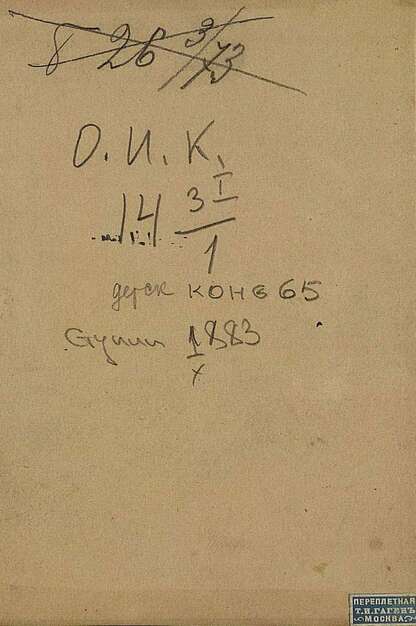 8 26 3/73
О. И. К.
14 3 I
1
КОНВ 65
Ступин 1883
I
x
ПЕРЕПЛЕТНАЯ
Т.И.ГАГЕНЪ
МОСКВА